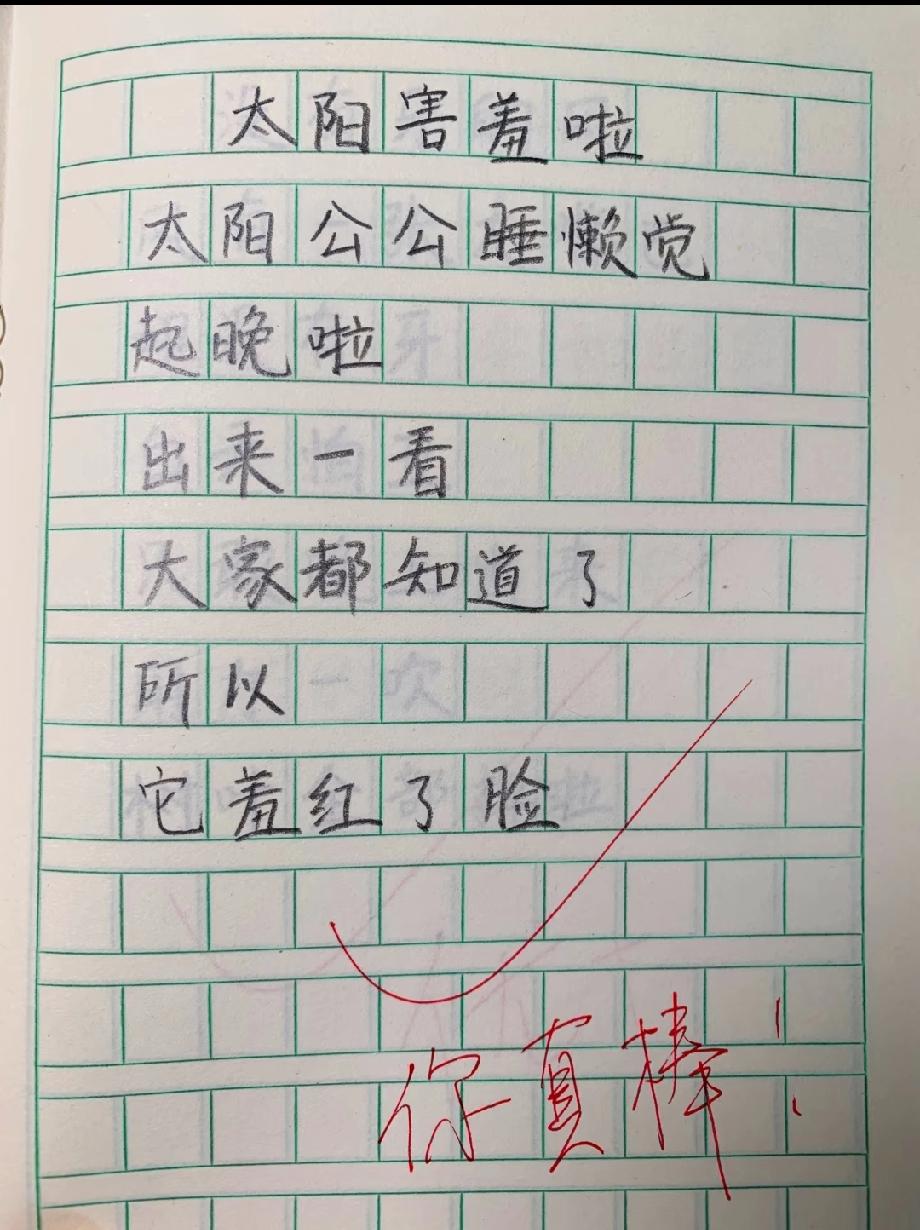 太阳害羞啦
太阳公公睡懒觉
起晚啦
出来一看
大家都知道了
所以
它羞红了脸
你真棒！